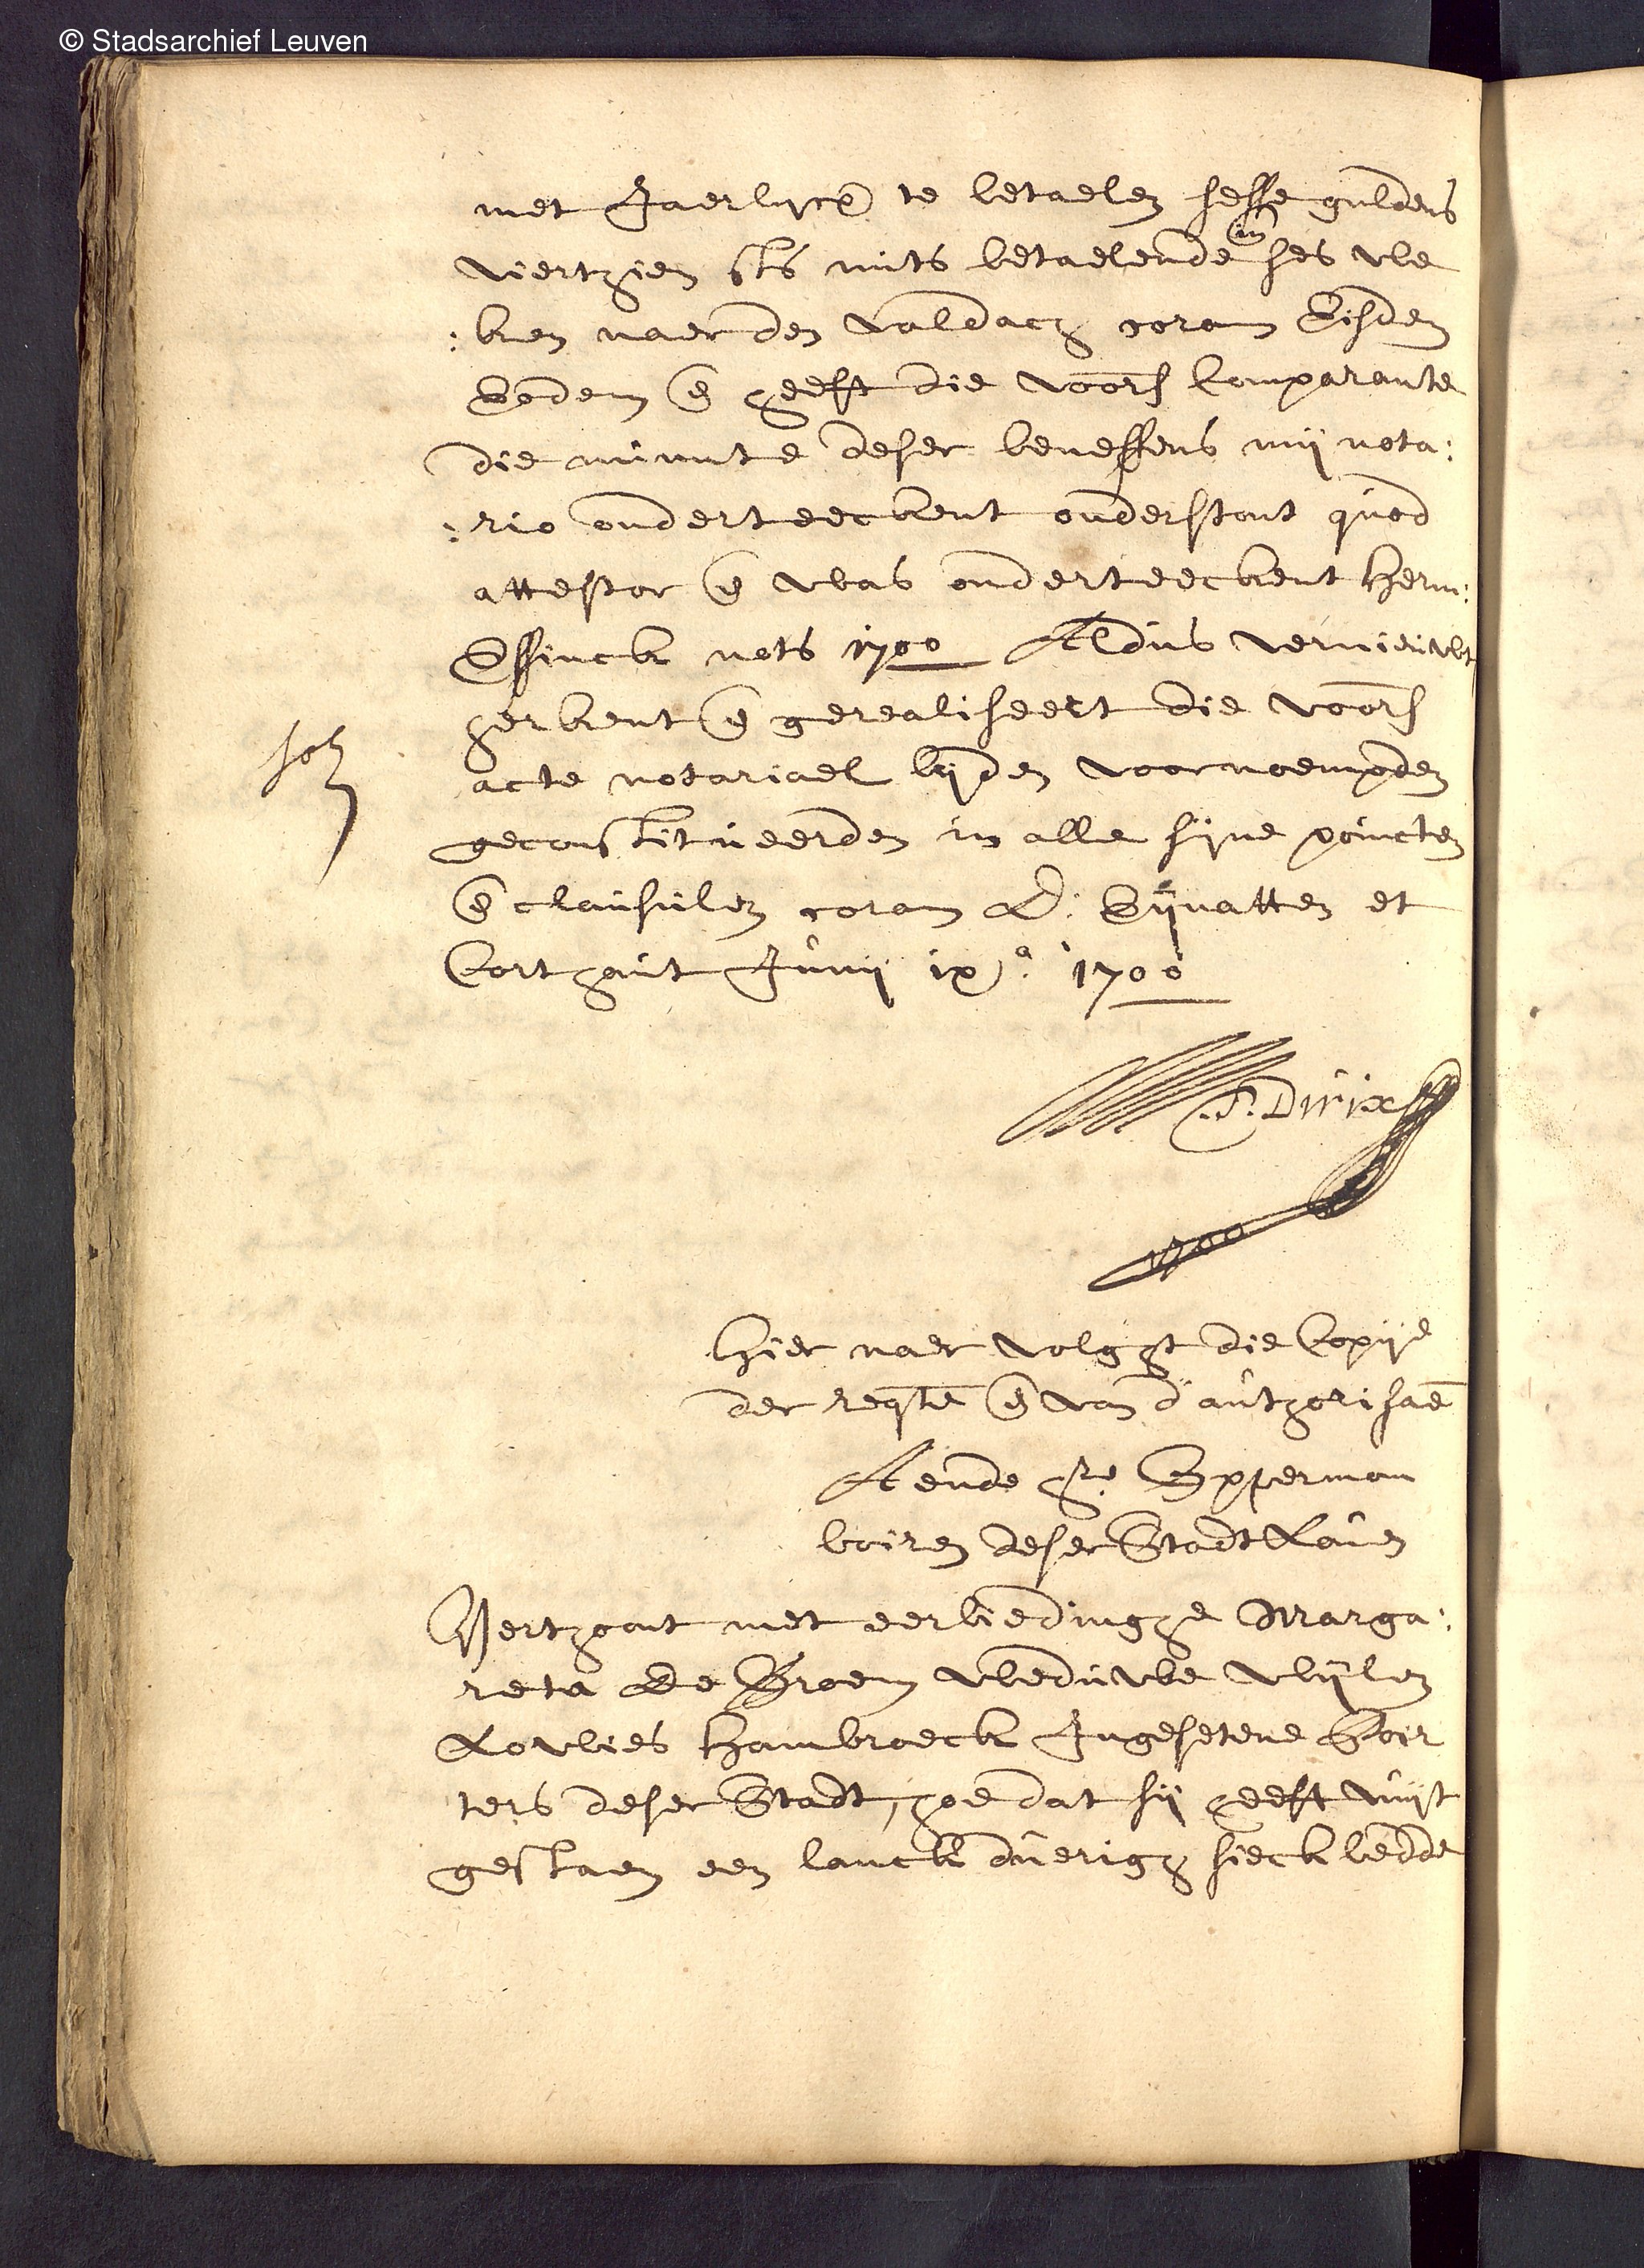 © Stadsarchief Leuven
met Jaerlycx te betaelen sesse guldens
vierthien sts mits betaelende in ses we
: ken naer den valdach coram Eisdem
Eodem en heeft die voors Comparante
die minute deser beneffens mij nota:
: rio onderteeckent onderstont quod
attestor en was onderteeckent Herm:
Essinck nots 1700 Aldus vernieuwt
herkent en gerealiseert die voors
solt
acte notariael bijden voornoempden
geconstitueerden in alle sijne poincten
en clausulen coram D: Eijnatten et
Corthaut Junij ixa 1700
J. Dirix
1700
Hier naer volght die Copije
der reqte en van d'authorisaē
Aende hre Opperman
boiren deser Stadt Loven
Verthoont met eerbiedinghe Marga:
reta De Broem weduwe wijlen
Lowies Hambroeck Ingesetene Poir
ters deser Stadt, hoe dat sij heeft uuijt
gestaen een lanckduerigh sieckbedde